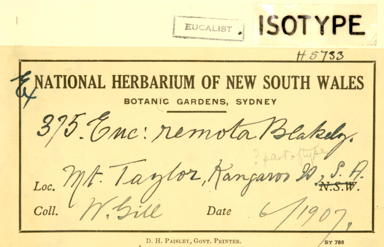 EUCALIST.
ISOTYPE.
H 5733
Ex
NATIONAL HERBARIUM OF NEW SOUTH WALES
BOTANIC GARDENS, SYDNEY
375. Euc: remota Blakely.
? part of type
Loc. Mt. Taylor, Kangaroo Id, S. A.
N.S.W.
Coll. W. Gill Date 6/1907.
D. H. PAISLEY, GOVT. PRINTER. ST 788